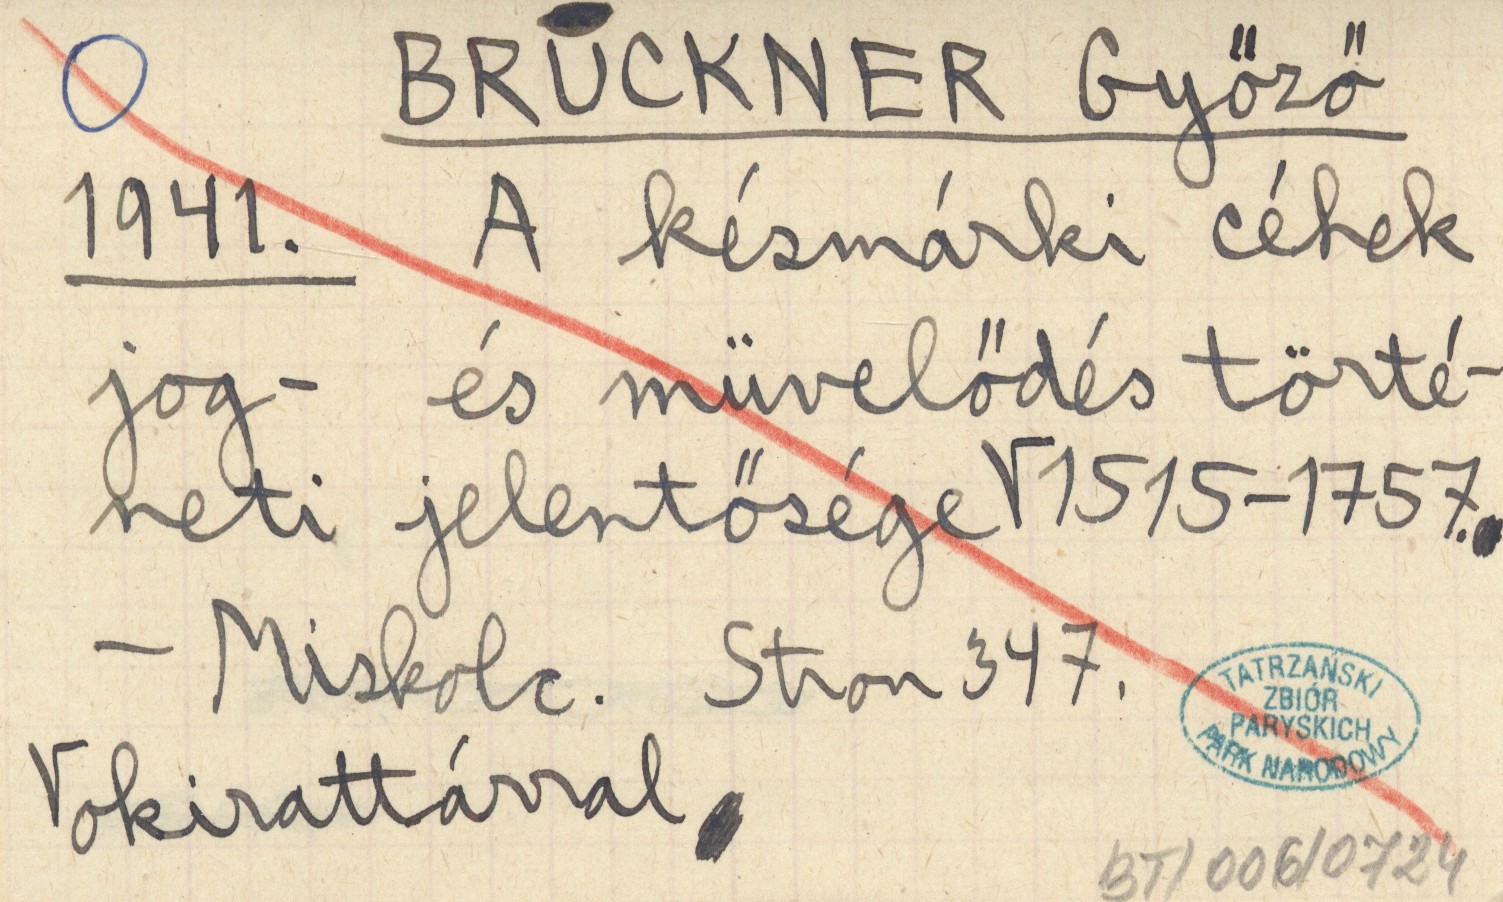 BRUCKNER Győző
1941. A késmárki céhek
jog- és művelődés törté-
neti jelentősége √1515-1757.
- Miskolc. Stron 347.
√okirattárral
TATRZAŃSKI
ZBIÓR
PARYSKICH
PARK NARODOWY
BT/006/0724